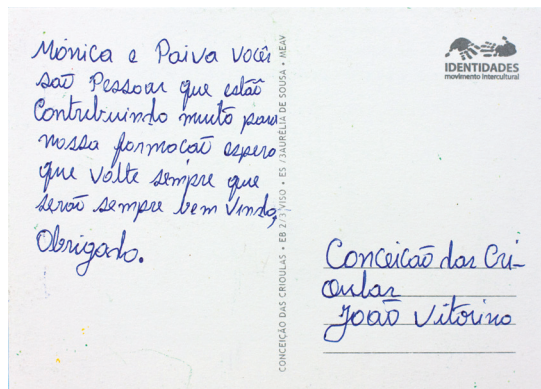 Mónica e Paiva vocês
saõ Pessoas que estão
Contribuindo muito para
nossa formacaõ espero
que volte sempre que
serão sempre bem vindo,
Obrigado.
CONCEIÇÃO DAS CRIOULAS • EB 2/3 VISO • ES /3AURÉLIA DE SOUSA • MEAV
IDENTIDADES
movimento intercultural
Conceicão das Cri-
oular
João Vitorino